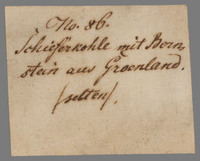 No. 86.
Schieferkohle mit Bern
stein aus Groenland.
/selten/.